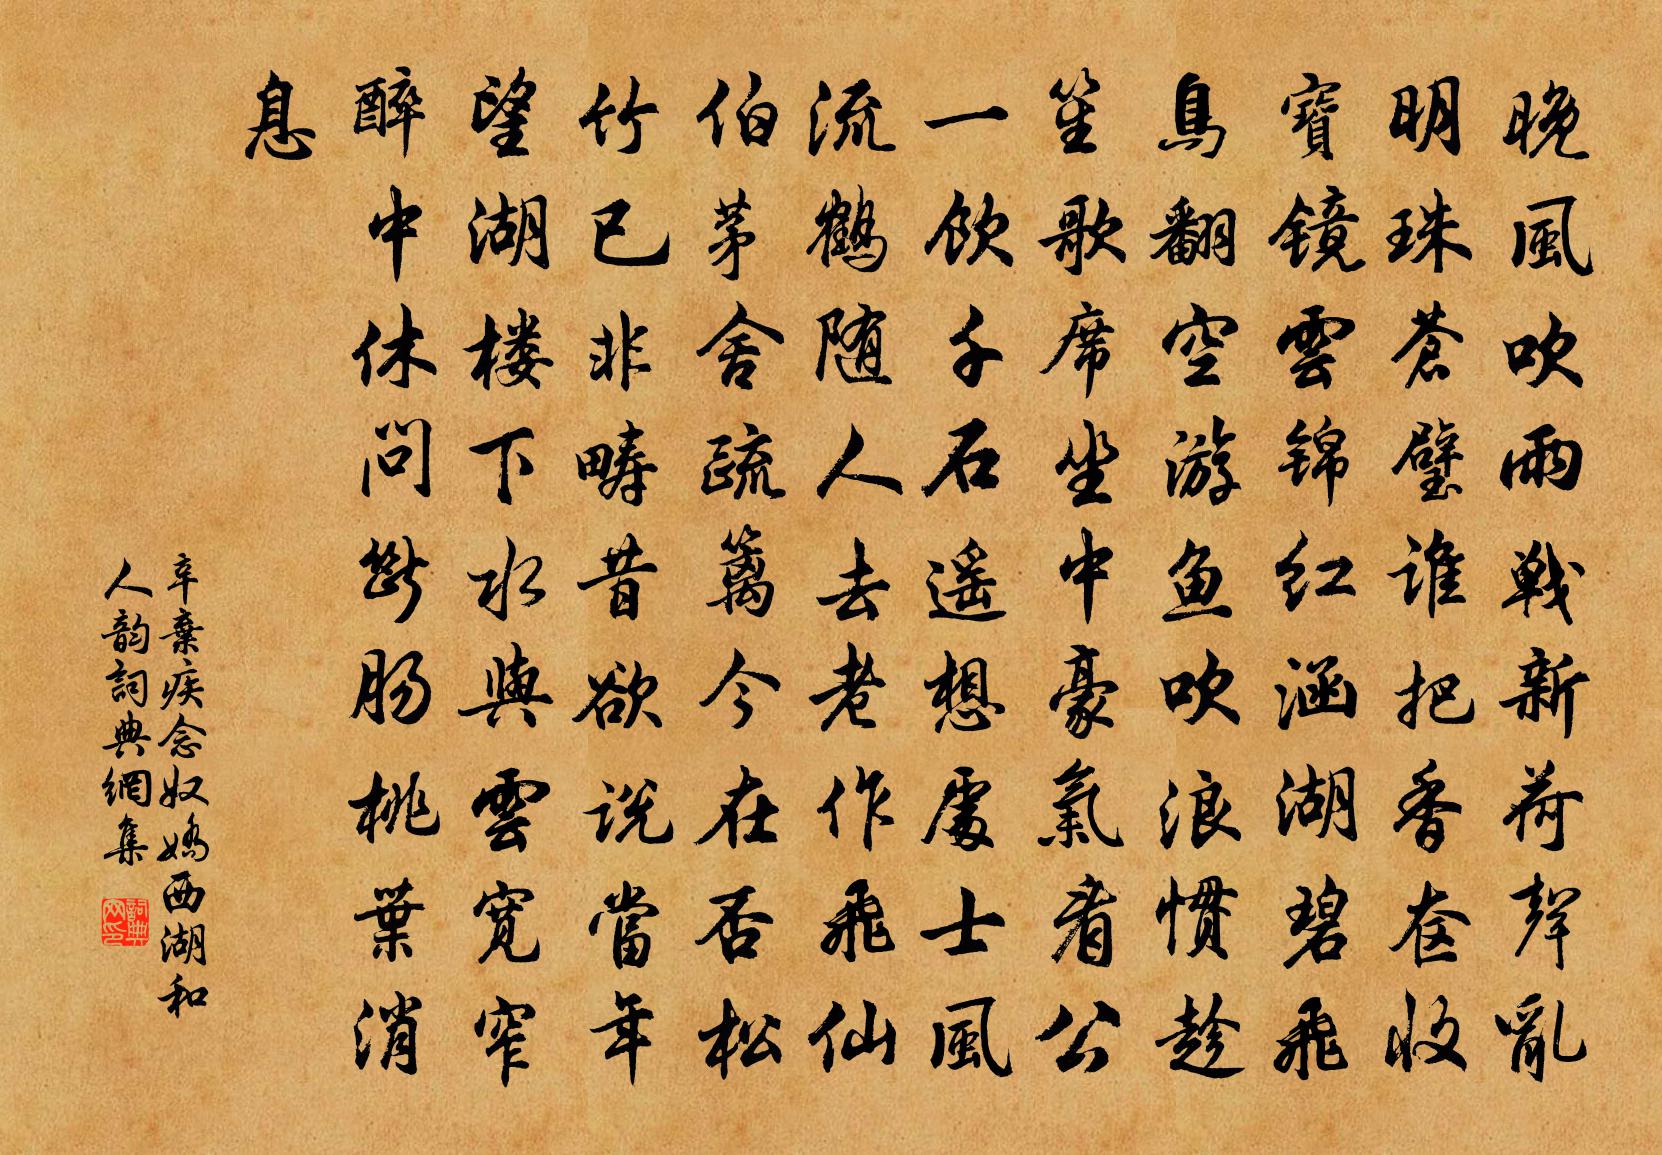 晚風吹雨戰新荷聲亂
明珠蒼璧誰把香奁收
寶镜雲锦红涵湖碧飛
鳥翻空游鱼吹浪慣趁
笙歌席坐中豪氣看公
一飲千石遥想處士風
流鶴随人去老作飛仙
伯茅舍疏篱今在否松
竹已非畴昔欲説當年
望湖楼下水與雲寬窄
醉中休问斷肠桃葉消
息
辛棄疾念奴嬌西湖和
人韵詞典網集
詞典网印